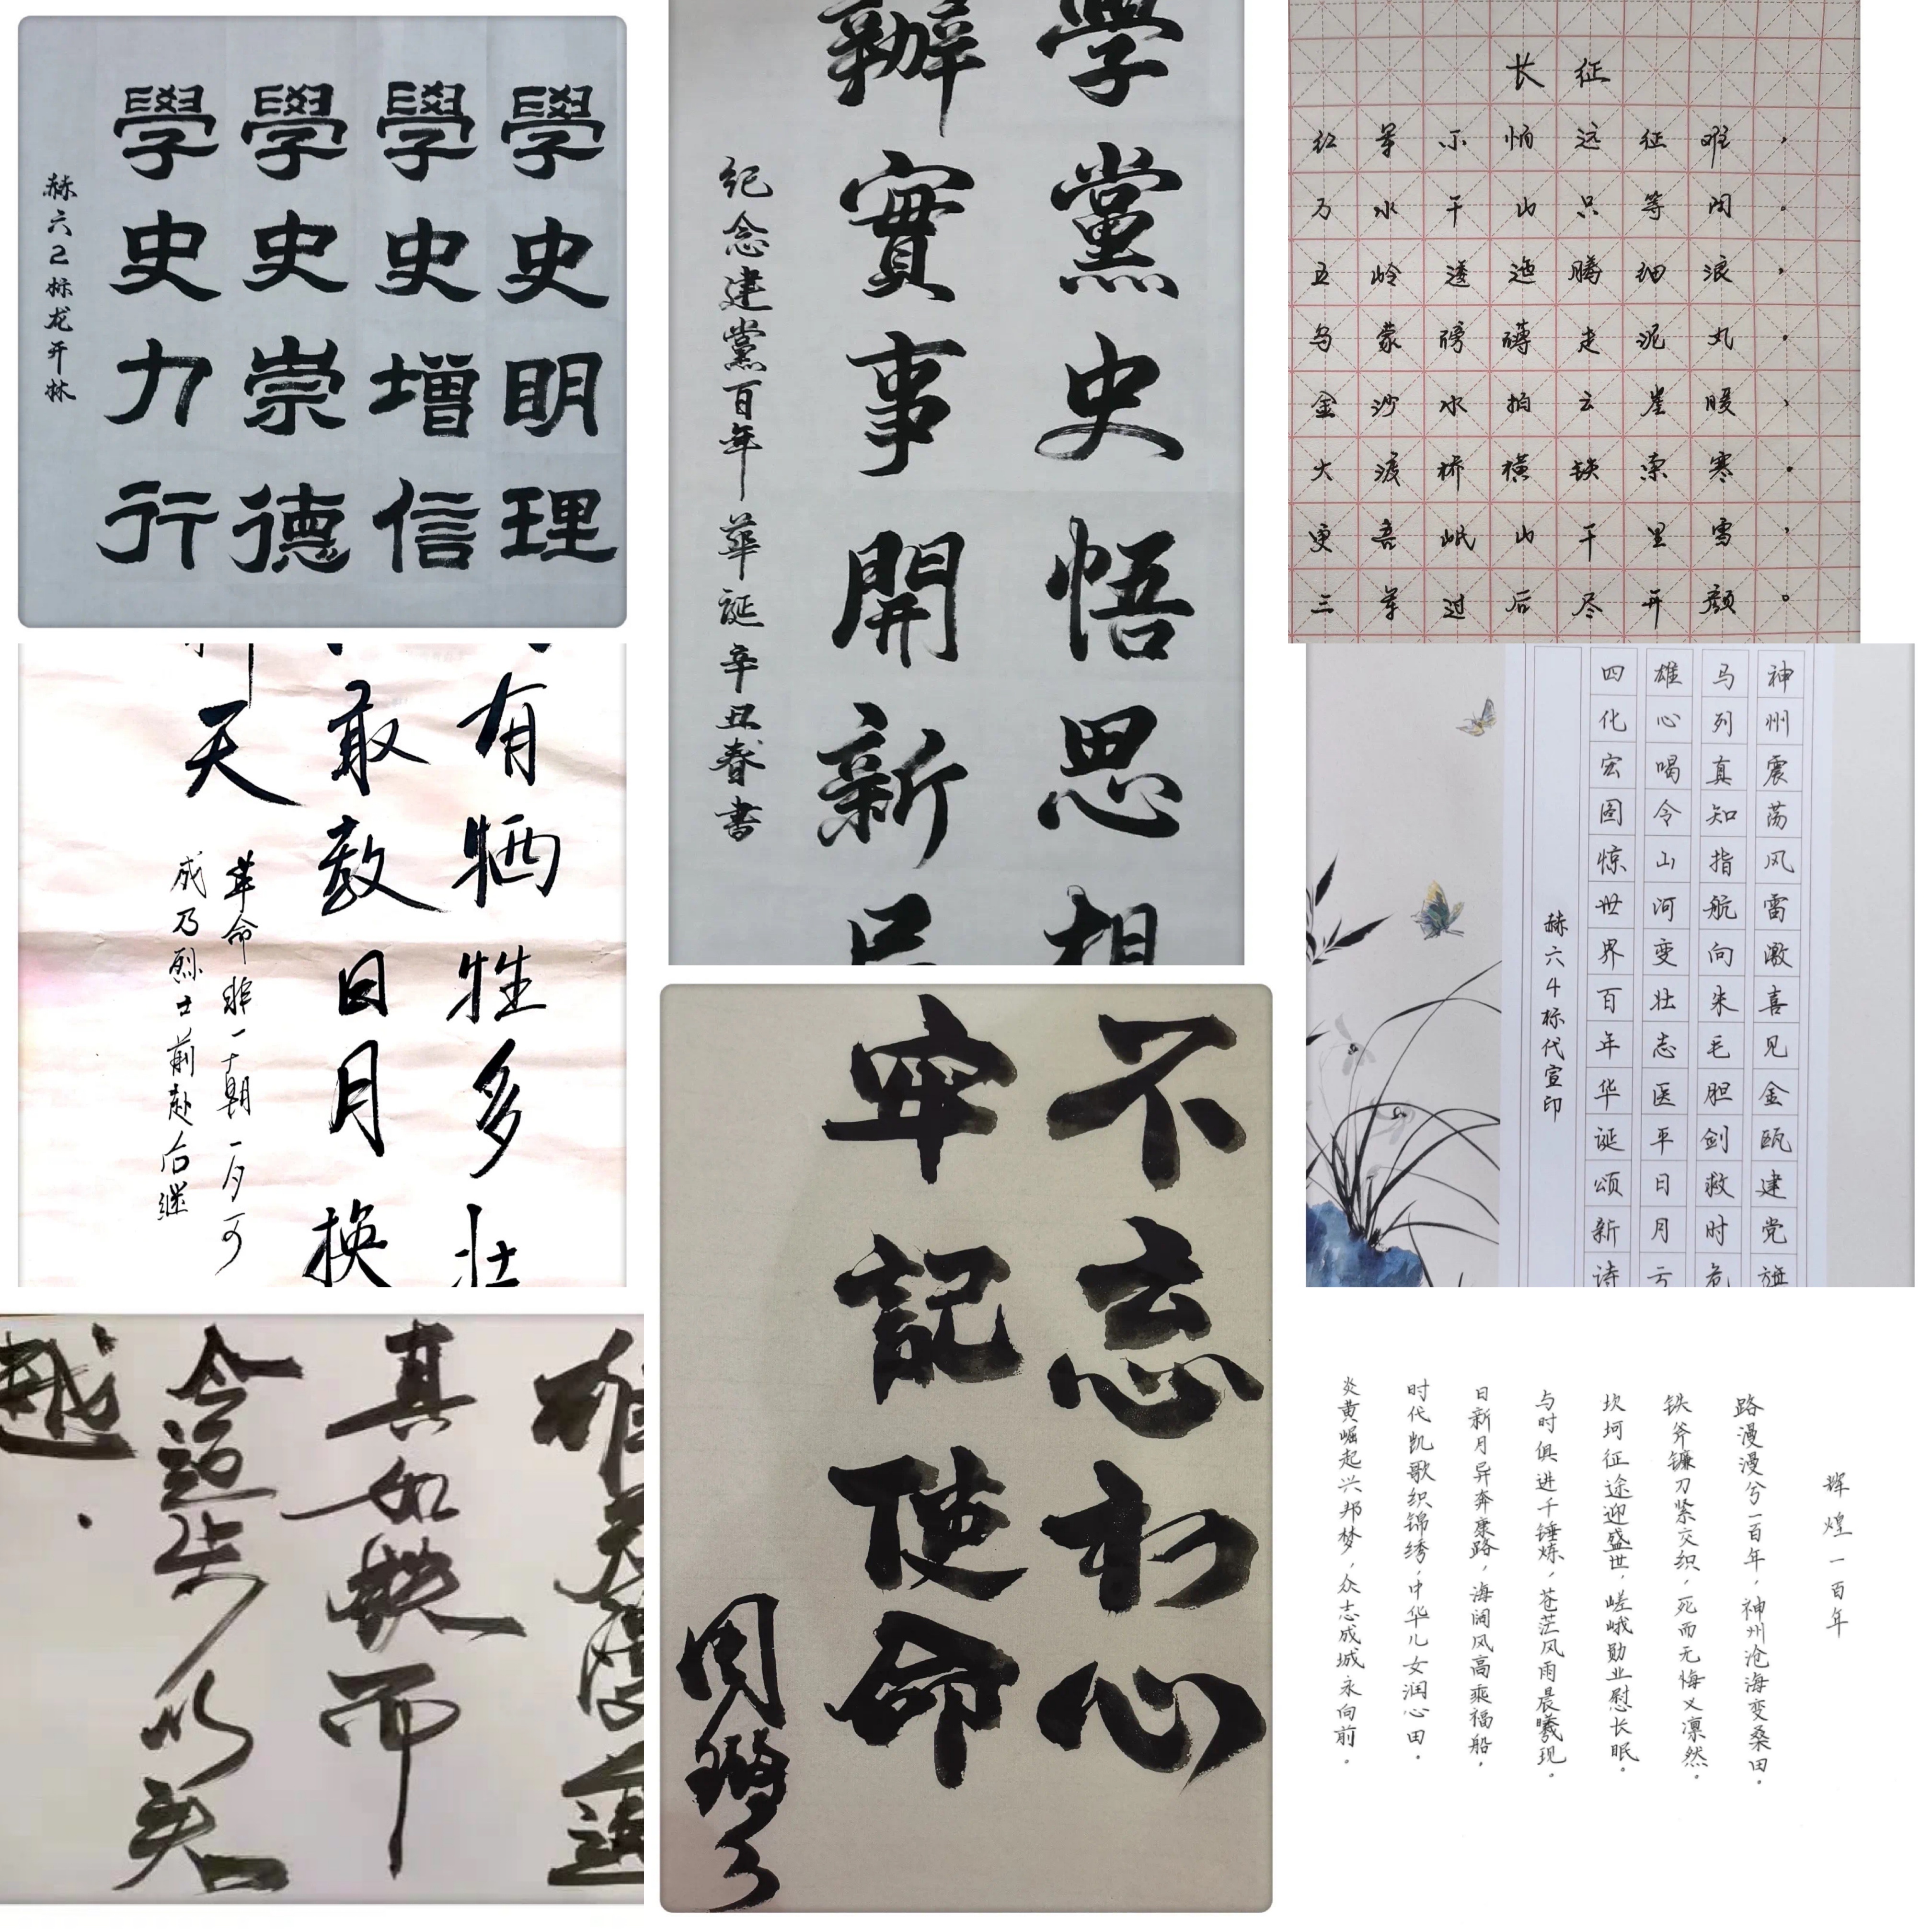 學史明理
學史增信
學史崇德
學史力行
赫六2标龙开林
學黨史悟思想
辦實事開新
纪念建黨百年華诞辛丑春書
长征
红军不怕远征难，
万水千山只等闲。
五岭逶迤腾细浪，
乌蒙磅礴走泥丸。
金沙水拍云崖暖，
大渡桥横铁索寒。
更喜岷山千里雪，
三军过后尽开颜。
有牺牲多壮
敢教日月换
天
革命非一朝一夕可
成乃烈士前赴后继
神州震荡风雷激喜见金瓯建党旗
马列真知指航向朱毛胆剑救时危
雄心喝令山河变壮志医平日月亏
四化宏图惊世界百年华诞颂新诗
赫六4标代宣印
雄关漫道
真如铁而
今迈步从头
越
不忘初心
牢记使命
辉煌一百年
路漫漫兮一百年，神州沧海变桑田。
铁斧镰刀紧交织，死而无悔义凛然。
坎坷征途迎盛世，嵯峨勋业慰长眠。
与时俱进千锤炼，苍茫风雨晨曦现。
日新月异奔康路，海阔风高乘福船。
时代凯歌织锦绣，中华儿女润心田。
炎黄崛起兴邦梦，众志成城永向前。